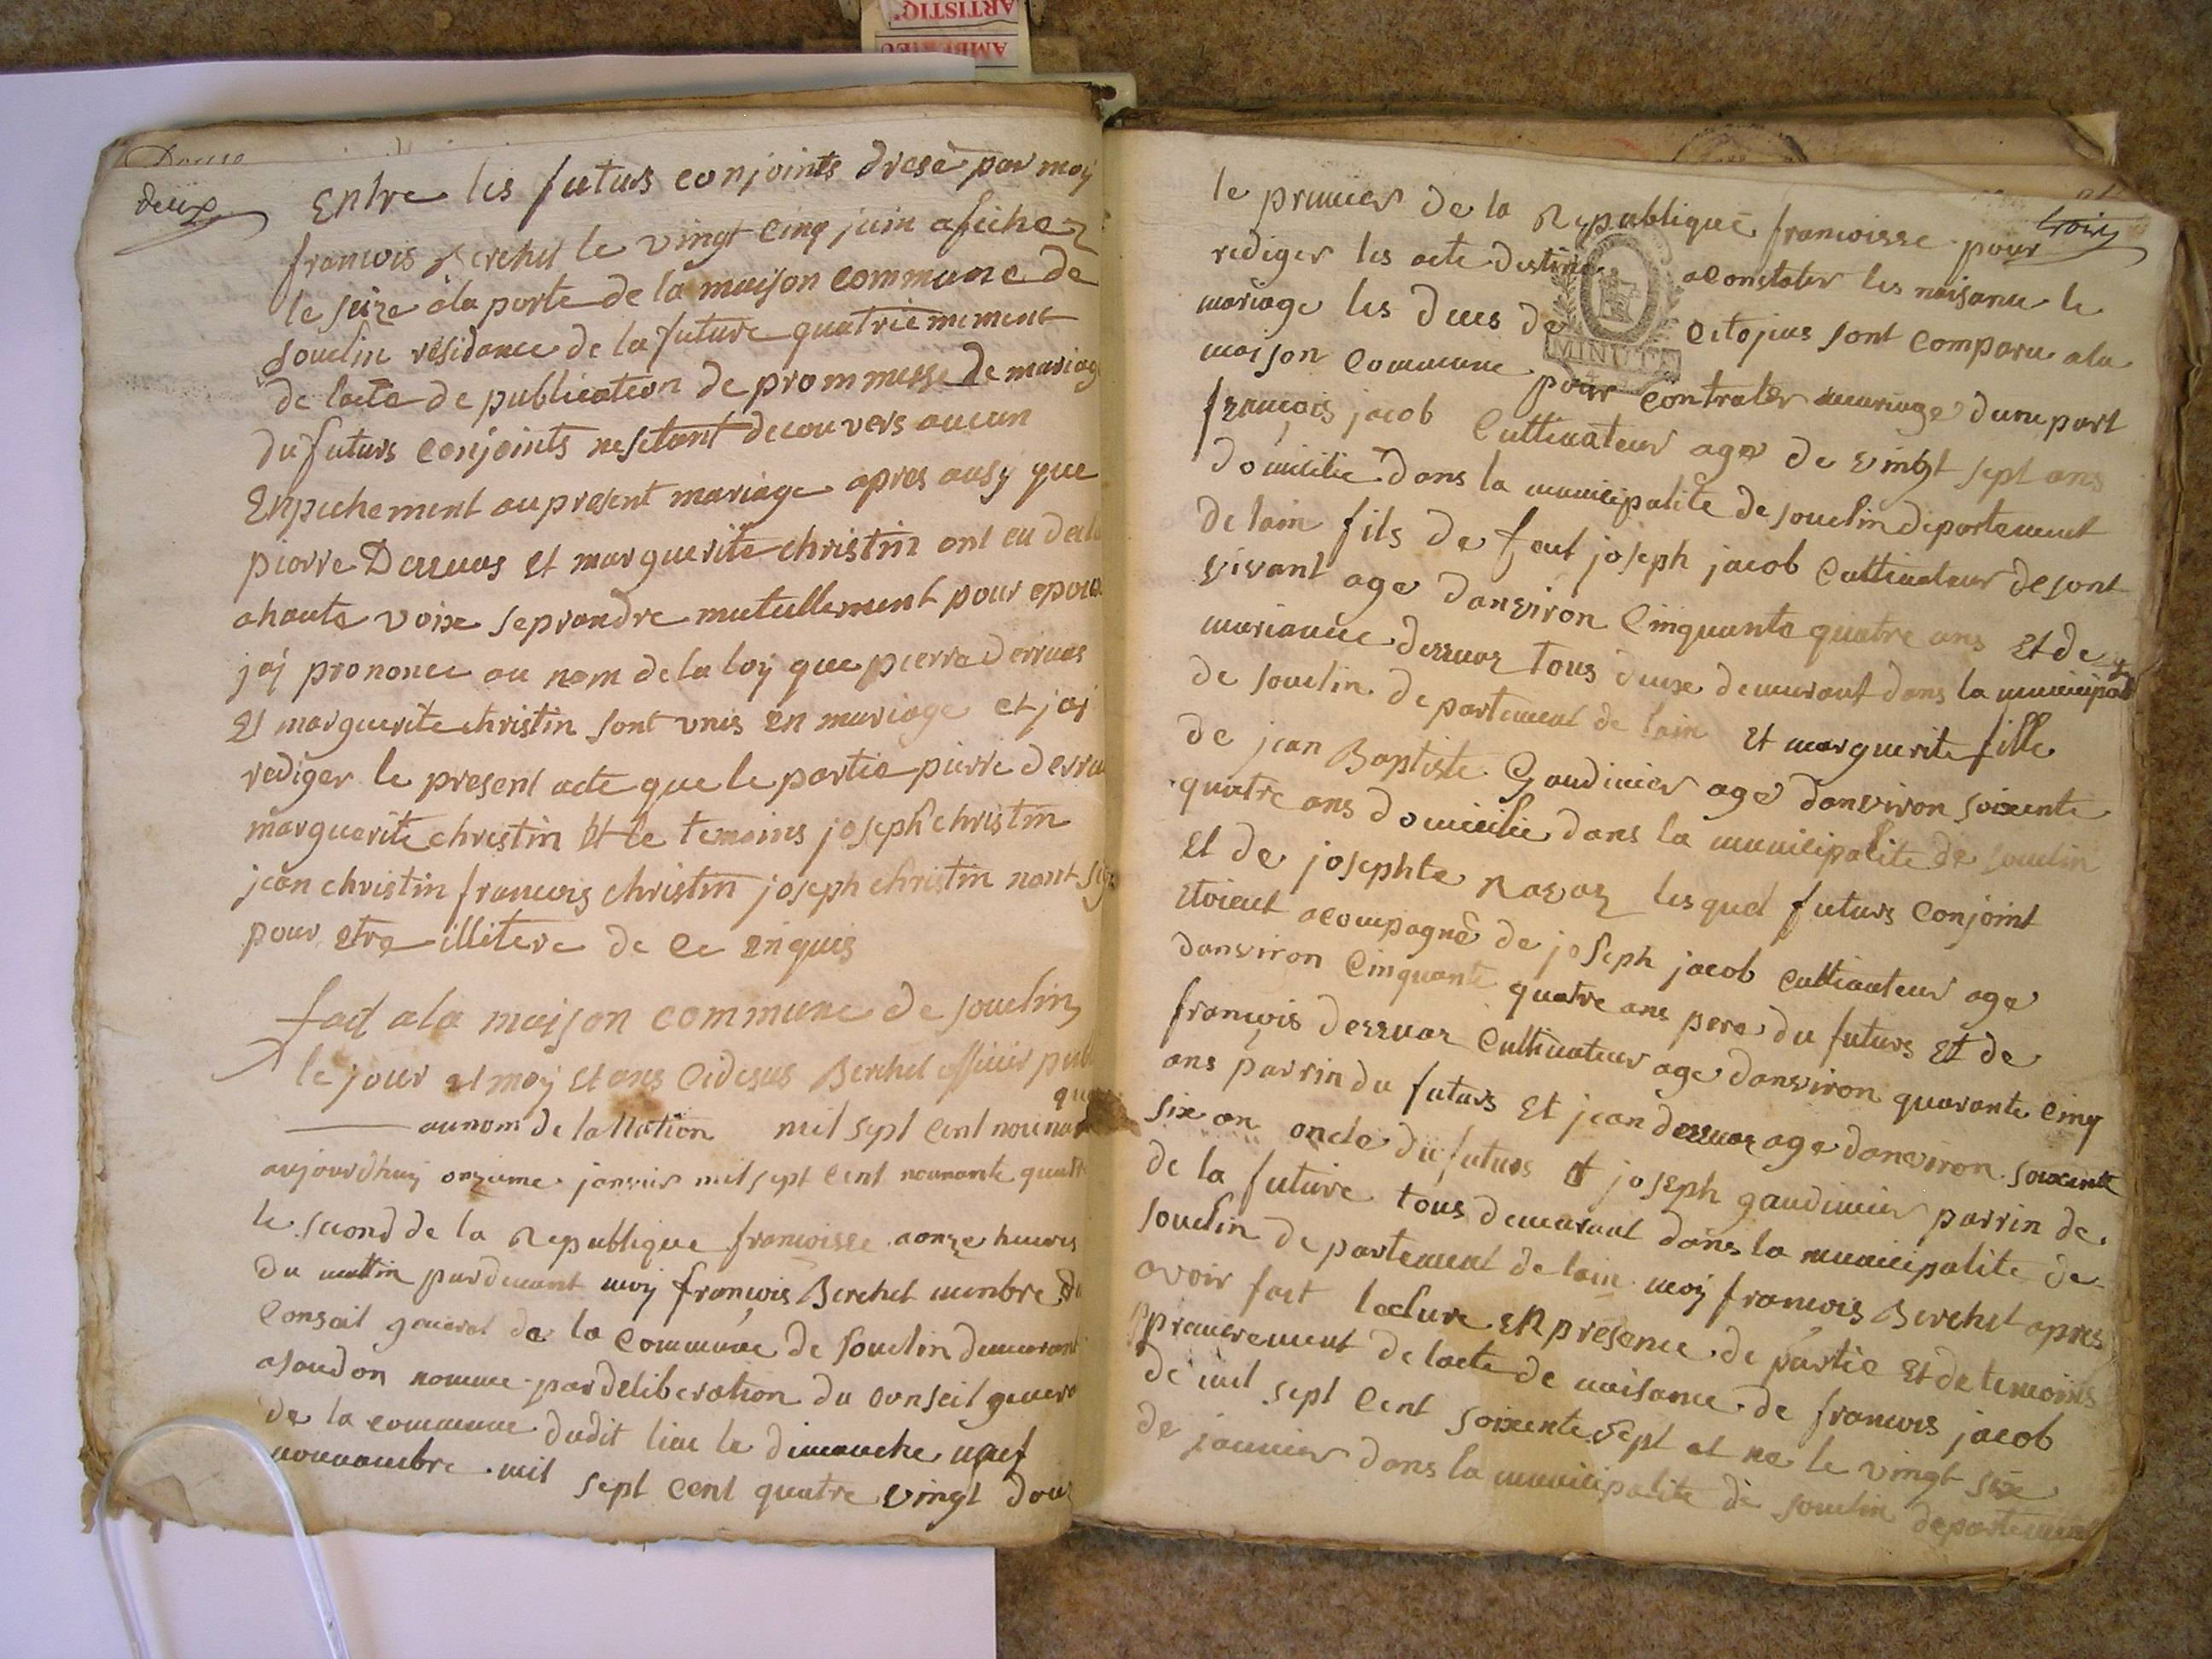 ARTISTIQ
AMBERIEU
deux
Entre les futurs conjoints dresé par moy
francois Berchet le vingt cinq juin afiche
le seize a la porte de la maison commune de
souclin residance de la future quatriemement
de lacte de publication de prommesse de mariage
du futurs conjoints nesitant decouvers aucun
Enpechement au present mariage apres ausy que
pierre Derruas et marguerite christin ont eu
a haute voix se prandre mutuellement pour epoux
jaj prononce au nom de la loy que pierre derruas
Et marguerite christin sont unis en mariage et jaj
rediger le present acte que le partie pierre derru
marguerite christin Et le temoins joseph christin
jean christin francois christin joseph christin nont
pour etre illitere de ce enquis
fait a la maison commune de souclin
le jour et moy et ans cidesus Berchet officier
qua
au nom de la Nation mil sept cent
aujourdhuy onzieme janvier mil sept cent nonante quatre
le second de la Republique francoisse a onze heures
du mattin pardevant moy françois Berchet membre du
Conseil general de la commune de souclin demeurant
a soudon nomme par deliberation du conseil general
de la commune dudit lieu le dimanche neuf
novambre mil sept cent quatre vingt douz
trois
le premier de la Republique francoisse pour
rediger les acte destine a constater les naisance le
mariage les deces de citoyens sont comparu a la
MINUTE
maison commune pour contrater mariage dune part
françois jacob cultivateur age de vingt sept ans
domicilié dans la municipalite de souclin departement
de lain fils de feut joseph jacob cultivateur de sont
vivant age danviron cinquante quatre ans Et de
derruaz tous deux demeurant dans la municipal
de souclin departement de lain Et marguerite fille
de jean Baptiste Gaudinier age danviron soixente
quatre ans domicilie dans la municipalite de souclin
Et de josephte lesquel futurs conjoint
etoient acompagné de joseph jacob cultivateur age
danviron cinquante quatre ans pere du futurs Et de
françois derruaz cultivateur age danviron quarante cinq
ans parrin du futurs Et jean derruaz age danviron soixente
six an oncle du futurs et joseph gaudinier parrin de
de la future tous demeurant dans la municipalite de
souclin departement de lain moy francois Berchet apres
avoir fait lecture en presence de partie Et de temoins
premierement de lacte de naisance de francois jacob
de mil sept cent soixente sept et ne le vingt six
de janvier dans la municipalite de souclin departement